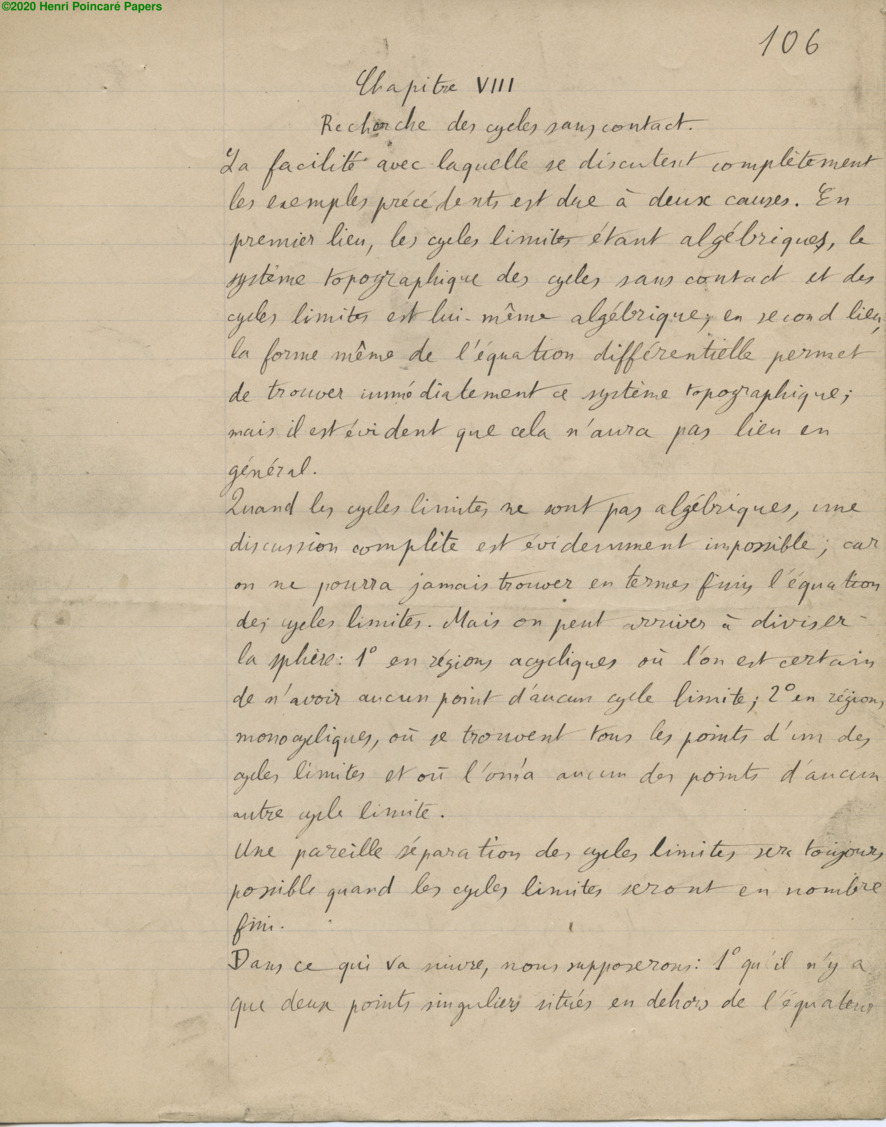 ©2020 Henri Poincaré Papers
106
Chapitre VIII
Recherche des cycles sans contact.
La facilité avec laquelle se discutent complètement
les exemples précédents est due à deux causes. En
premier lieu, les cycles limites étant algébriques, le
système topographique des cycles sans contact et des
cycles limites est lui-même algébrique; en second lieu,
la forme même de l'équation différentielle permet
de trouver immédiatement ce système topographique;
mais il est évident que cela n'aura pas lieu en
général.
Quand les cycles limites ne sont pas algébriques, une
discussion complète est évidemment impossible; car
on ne pourra jamais trouver en termes finis l'équation
des cycles limites. Mais on peut arriver à diviser
la sphère: 1° en régions acycliques où l'on est certain
de n'avoir aucun point d'aucun cycle limite; 2° en régions
monocycliques, où se trouvent tous les points d'un des
cycles limites et où l'on n'a aucun des points d'aucun
autre cycle limite.
Une pareille séparation des cycles limites sera toujours
possible quand les cycles limites seront en nombre
fini.
Dans ce qui va suivre, nous supposerons: 1° qu'il n'y a
que deux points singuliers situés en dehors de l'équateur